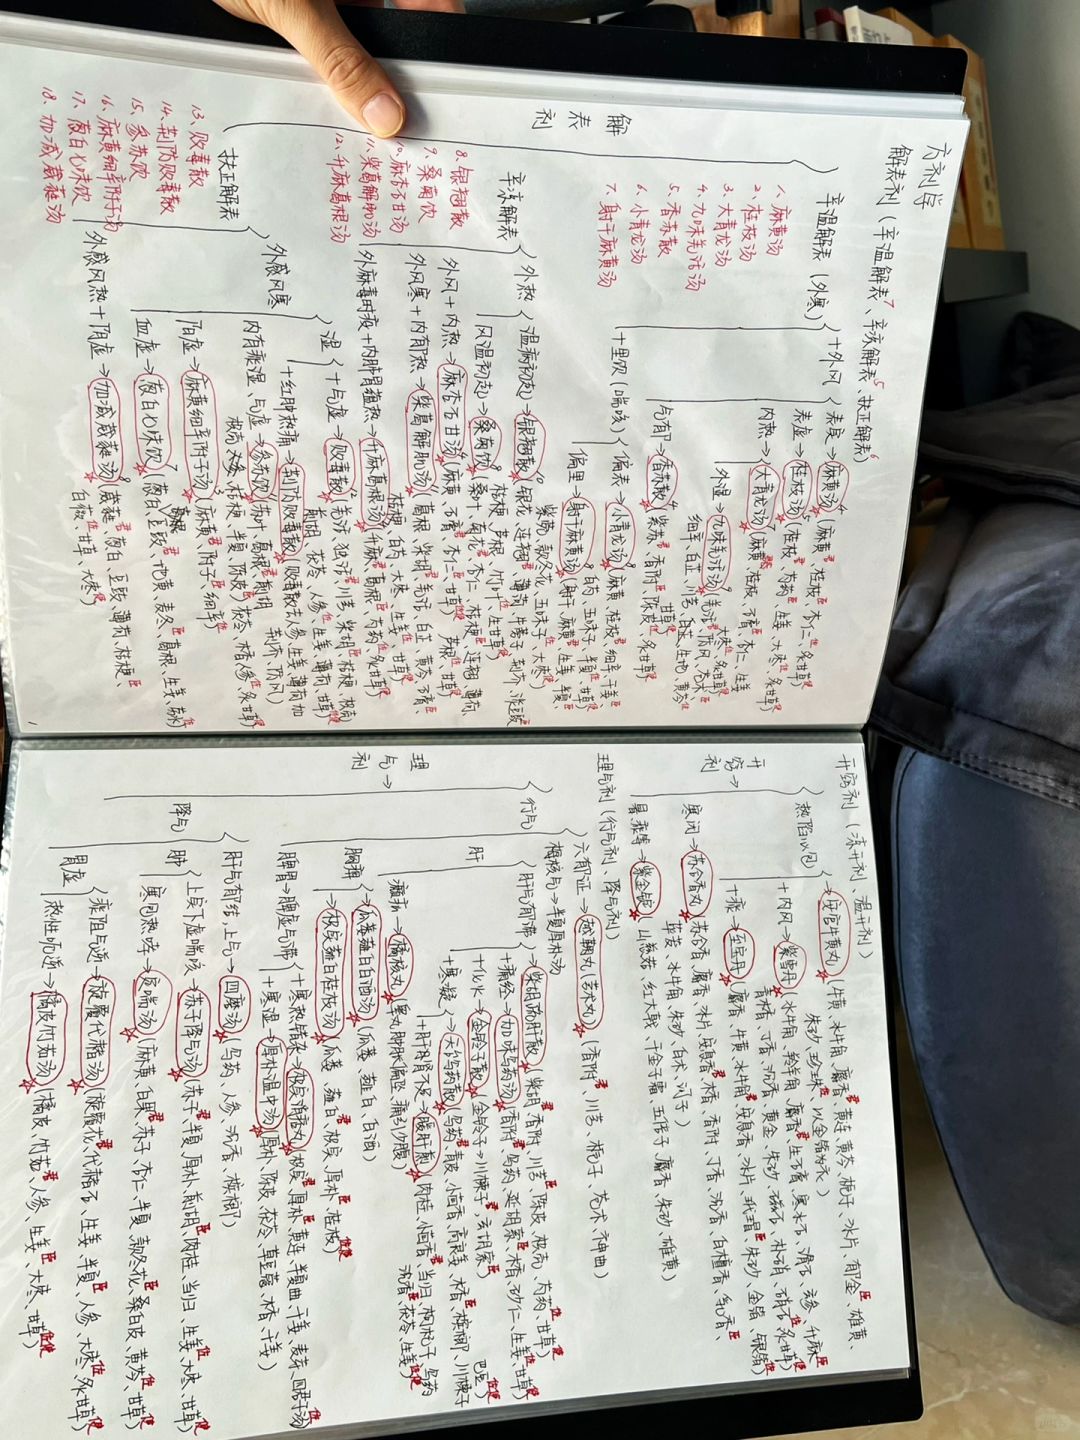 方剂学
解表剂(辛温解表7、辛凉解表5、扶正解表6)
解表剂
辛温解表(外寒)
1、麻黄汤
2、桂枝汤
3、大青龙汤
4、九味羌活汤
5、香苏散
6、小青龙汤
7、射干麻黄汤
+外风
表虚→桂枝汤(桂枝君、芍药臣、生姜、大枣佐、炙甘草)
麻黄汤(麻黄君、桂枝臣、杏仁佐、炙甘草)
内热→大青龙汤(麻黄君、桂枝、石膏、杏仁、生姜
大枣、炙甘草)
外湿→九味羌活汤(羌活君、防风、苍术臣
细辛、白芷、川芎、生地、黄芩
气郁→香苏散(紫苏、香附、陈皮、炙甘草)
+里饮(喘咳)
偏表→小青龙汤(麻黄、桂枝君、细辛、干姜
白芍、五味子、半夏、甘草)
偏里→射干麻黄汤(射干、麻黄君、生姜、半夏
紫菀、款冬花、五味子、大枣)
辛凉解表
8、银翘散
9、桑菊饮
10、麻杏石甘汤
11、柴葛解肌汤
12、升麻葛根汤
外热
温病初起→银翘散(银花、连翘君、薄荷、牛蒡子、荆芥、淡豆豉
桔梗、芦根、竹叶、生甘草)
风温初起→桑菊饮(桑叶、菊花君、杏仁、桔梗臣、连翘、薄荷、
芦根、甘草)
外风+内热→麻杏石甘汤(麻黄、石膏君、杏仁臣、甘草)
外风寒+内有热→柴葛解肌汤(葛根、柴胡君、羌活、白芷、黄芩、石膏、
桔梗、白芍、大枣、生姜、甘草)
外麻毒时疫+内肺胃蕴热→升麻葛根汤(升麻君、葛根臣、芍药、炙甘草)
扶正解表
13、败毒散
14、荆防败毒散
15、参苏饮
16、麻黄细辛附子汤
17、葱白七味饮
18、加减葳蕤汤
外感风寒
湿
+气虚→败毒散(羌活、独活君、川芎、柴胡臣、桔梗、枳壳
前胡、茯苓、人参、生姜、薄荷、甘草)
+红肿热痛→荆防败毒散(败毒散去人参、生姜、薄荷加
荆芥、防风)
内有痰湿、气虚→参苏饮(苏叶、葛根君、前胡
枳壳、木香、桔梗、半夏、陈皮、茯苓、人参、炙甘草)
阳虚→麻黄细辛附子汤(麻黄君、附子臣、细辛佐)
血虚→葱白七味饮(葱白、豆豉、地黄、麦冬、葛根、生姜、劳水)
外感风热+阴虚→加减葳蕤汤(葳蕤君、葱白、豆豉、薄荷、桔梗臣、
白薇、甘草、大枣)
1
开窍剂(凉开剂、温开剂)
开窍→剂
热陷心包
安宫牛黄丸(牛黄、水牛角、麝香君、黄连、黄芩、栀子、冰片、郁金臣、雄黄、
朱砂、珍珠佐、以金箔为衣)
+内风→紫雪丹(水牛角、羚羊角、麝香君、生石膏、寒水石、滑石、玄参、升麻臣
青木香、丁香、沉香、黄金、朱砂、磁石、朴硝、硝石佐、炙甘草使)
+痰→至宝丹(麝香、牛黄、水牛角君、安息香、冰片、玳瑁臣、朱砂、金箔、银箔
寒闭→苏合香丸(苏合香、麝香、冰片、安息香君、木香、香附、丁香、沉香、白檀香、乳香臣、
荜茇、水牛角、朱砂、白术、诃子)
暑痰等→紫金锭(山慈菇、红大戟、千金子霜、五倍子、麝香、朱砂、雄黄)
理气剂(行气剂、降气剂)
理气→剂
行气
六郁证→越鞠丸(芎术丸)(香附君、川芎、栀子、苍术、神曲)
梅核气→半夏厚朴汤
肝
肝气郁滞→柴胡疏肝散(柴胡君、香附、川芎臣、陈皮、枳壳、芍药佐、甘草使)
+痛经→加味乌药汤(香附君、乌药、延胡索臣、木香、砂仁、生姜佐、甘草使)
+化火→金铃子散(金铃子→川楝子君、玄胡索臣)
+寒凝→天台乌药散(乌药君、青皮、小茴香、高良姜、木香臣、槟榔、川楝子
巴豆佐使)
+肝肾不足→暖肝煎(肉桂、小茴香君、当归、枸杞子、乌药
沉香臣、茯苓、生姜佐)
癥疝→橘核丸(睾丸肿胀偏坠、痛引少腹)
胸痹
瓜蒌薤白白酒汤(瓜蒌、薤白、白酒)
枳实薤白桂枝汤(瓜蒌、薤白君、枳实、厚朴臣、桂枝佐使)
脾胃→脾虚气滞
+寒热错杂→枳实消痞丸(枳实君、厚朴臣、黄连、半夏曲、干姜、麦芽、四君子汤佐)
+寒湿→厚朴温中汤(厚朴、陈皮、茯苓、草豆蔻、木香、干姜)
降气
肝气郁结,上气→四磨汤(乌药、人参、沉香、槟榔)
肺
上实下虚喘咳→苏子降气汤(苏子君、半夏、厚朴、前胡臣、肉桂、当归、生姜佐、大枣、甘草使)
寒包热哮→定喘汤(麻黄、白果君、苏子、杏仁、半夏、款冬花臣、桑白皮、黄芩佐、甘草使)
胃虚
痰阻气逆→旋覆代赭汤(旋覆花君、代赭石、生姜、半夏臣、人参、大枣佐、炙甘草使)
热性呃逆→橘皮竹茹汤(橘皮、竹茹君、人参、生姜臣、大枣、甘草佐使)